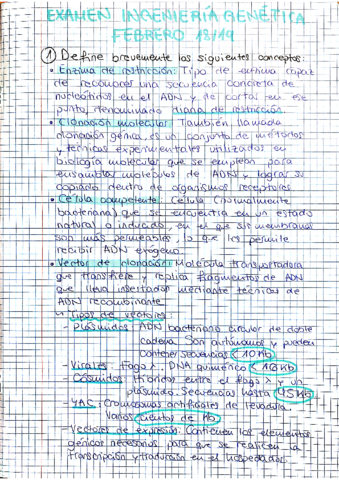 EXAMEN INGENIERÍA GENÉTICA
FEBRERO 18/19
① Define brevemente los siguientes conceptos:
• Enzima de restricción: Tipo de enzima capaz
de reconocer una secuencia concreta de
nucleótidos en el ADN y de cortar en ese
punto denominado diana de restricción.
• Clonación molecular: También llamada
clonación génica, es un conjunto de métodos
y técnicas experimentales utilizados en
biología molecular que se emplean para
ensamblar moléculas de ADN y lograr su
copiado dentro de organismos receptores
• Célula competente: Célula (normalmente
bacteriana) que se encuentra en un estado
natural o inducido, en el que sus membranas
son más permeables, lo que les permite
recibir ADN exógeno.
• Vector de clonación: Molécula transportadora
que transfiere y replica fragmentos de ADN
que lleva insertados mediante técnicas de
ADN recombinante.
Tipos de vectores:
- Plásmidos: ADN bacteriano circular de doble
cadena. Son autónomos y pueden
contener secuencias < 10 Kb
- Virales: Fago λ. DNA quimérico < 16 Kb
- Cósmidos: Híbridos entre el fago λ y un
plásmido. Secuencias hasta 45 Kb
- YAC: Cromosomas artificiales de levadura.
Varios cientos de Kb
Vectores de expresión: Contienen los elementos
génicos necesarios para que se realicen la
transcripción y traducción en el hospedador.